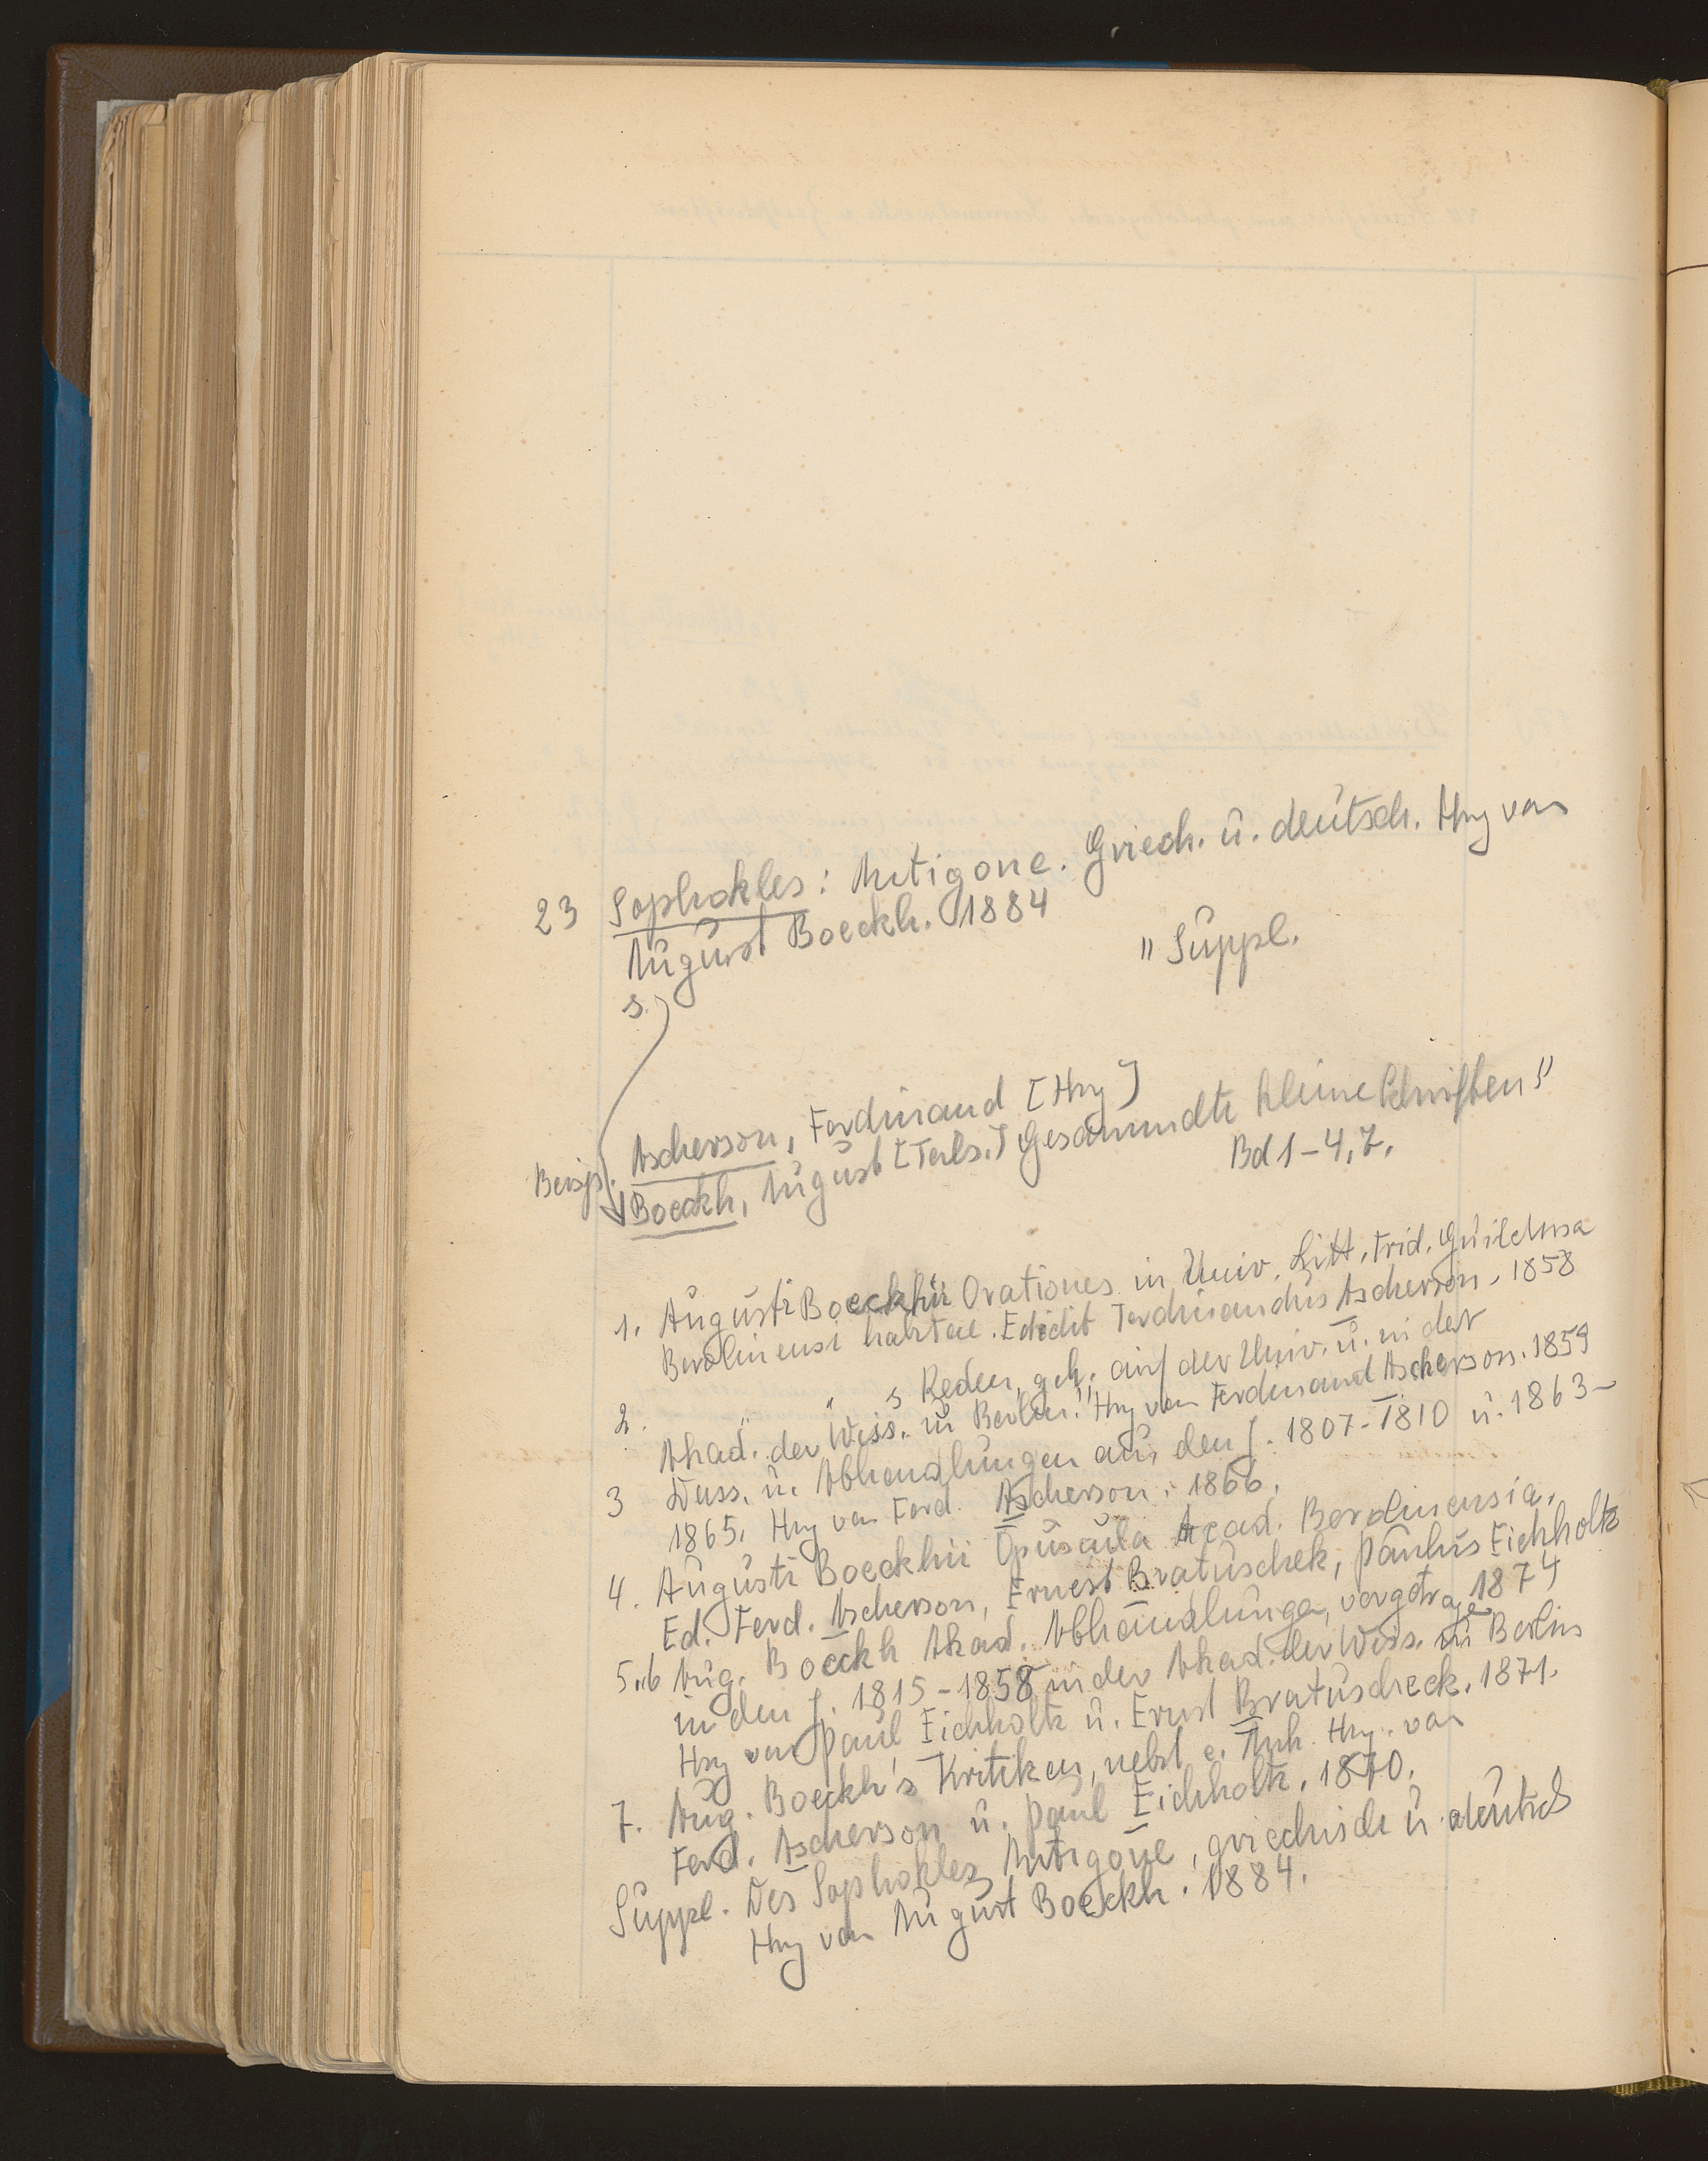 23 Sophokles: Antigone. Griech. u. deutsch. Hrg von
August Boeckh. 1884
" Suppl.
s.
Ascherson, Ferdinand [Hrg]
Beisp. Boeckh, August [Teils.] Gesammelte kleine Schriften"
Bd 1-4, 7.
1. Augusti Boeckhii Orationes in Univ. Litt. Frid. Guilelma
Berolinensi habitae. Edidit Ferdinandus Ascherson. 1858
2. " " s Reden, geh. auf der Univ. u. in der
Akad. der Wiss. zu Berlin. Hrg von Ferdinand Ascherson. 1859
3 Diss. u. Abhandlungen aus den J. 1807-1810 u. 1863-
1865. Hrg von Ferd. Ascherson. 1866.
4. Augusti Boeckhii Opuscula Acad. Berolinensia.
Ed. Ferd. Ascherson, Ernest Bratuschek, Paulus Eichholtz
1874
5.,6 Aug. Boeckh Akad. Abhandlungen, vorgetragen
in den J. 1815-1858 in der Akad. der Wiss. zu Berlin
Hrg von Paul Eichholtz u. Ernst Bratuscheck. 1871.
7. Aug. Boeckh's Kritiken, nebst e. Anh. Hrg. von
Ferd. Ascherson u. Paul Eichholtz. 1870.
Suppl. Des Sophokles Antigone, griechisch u. deutsch
Hrg von August Boeckh. 1884.